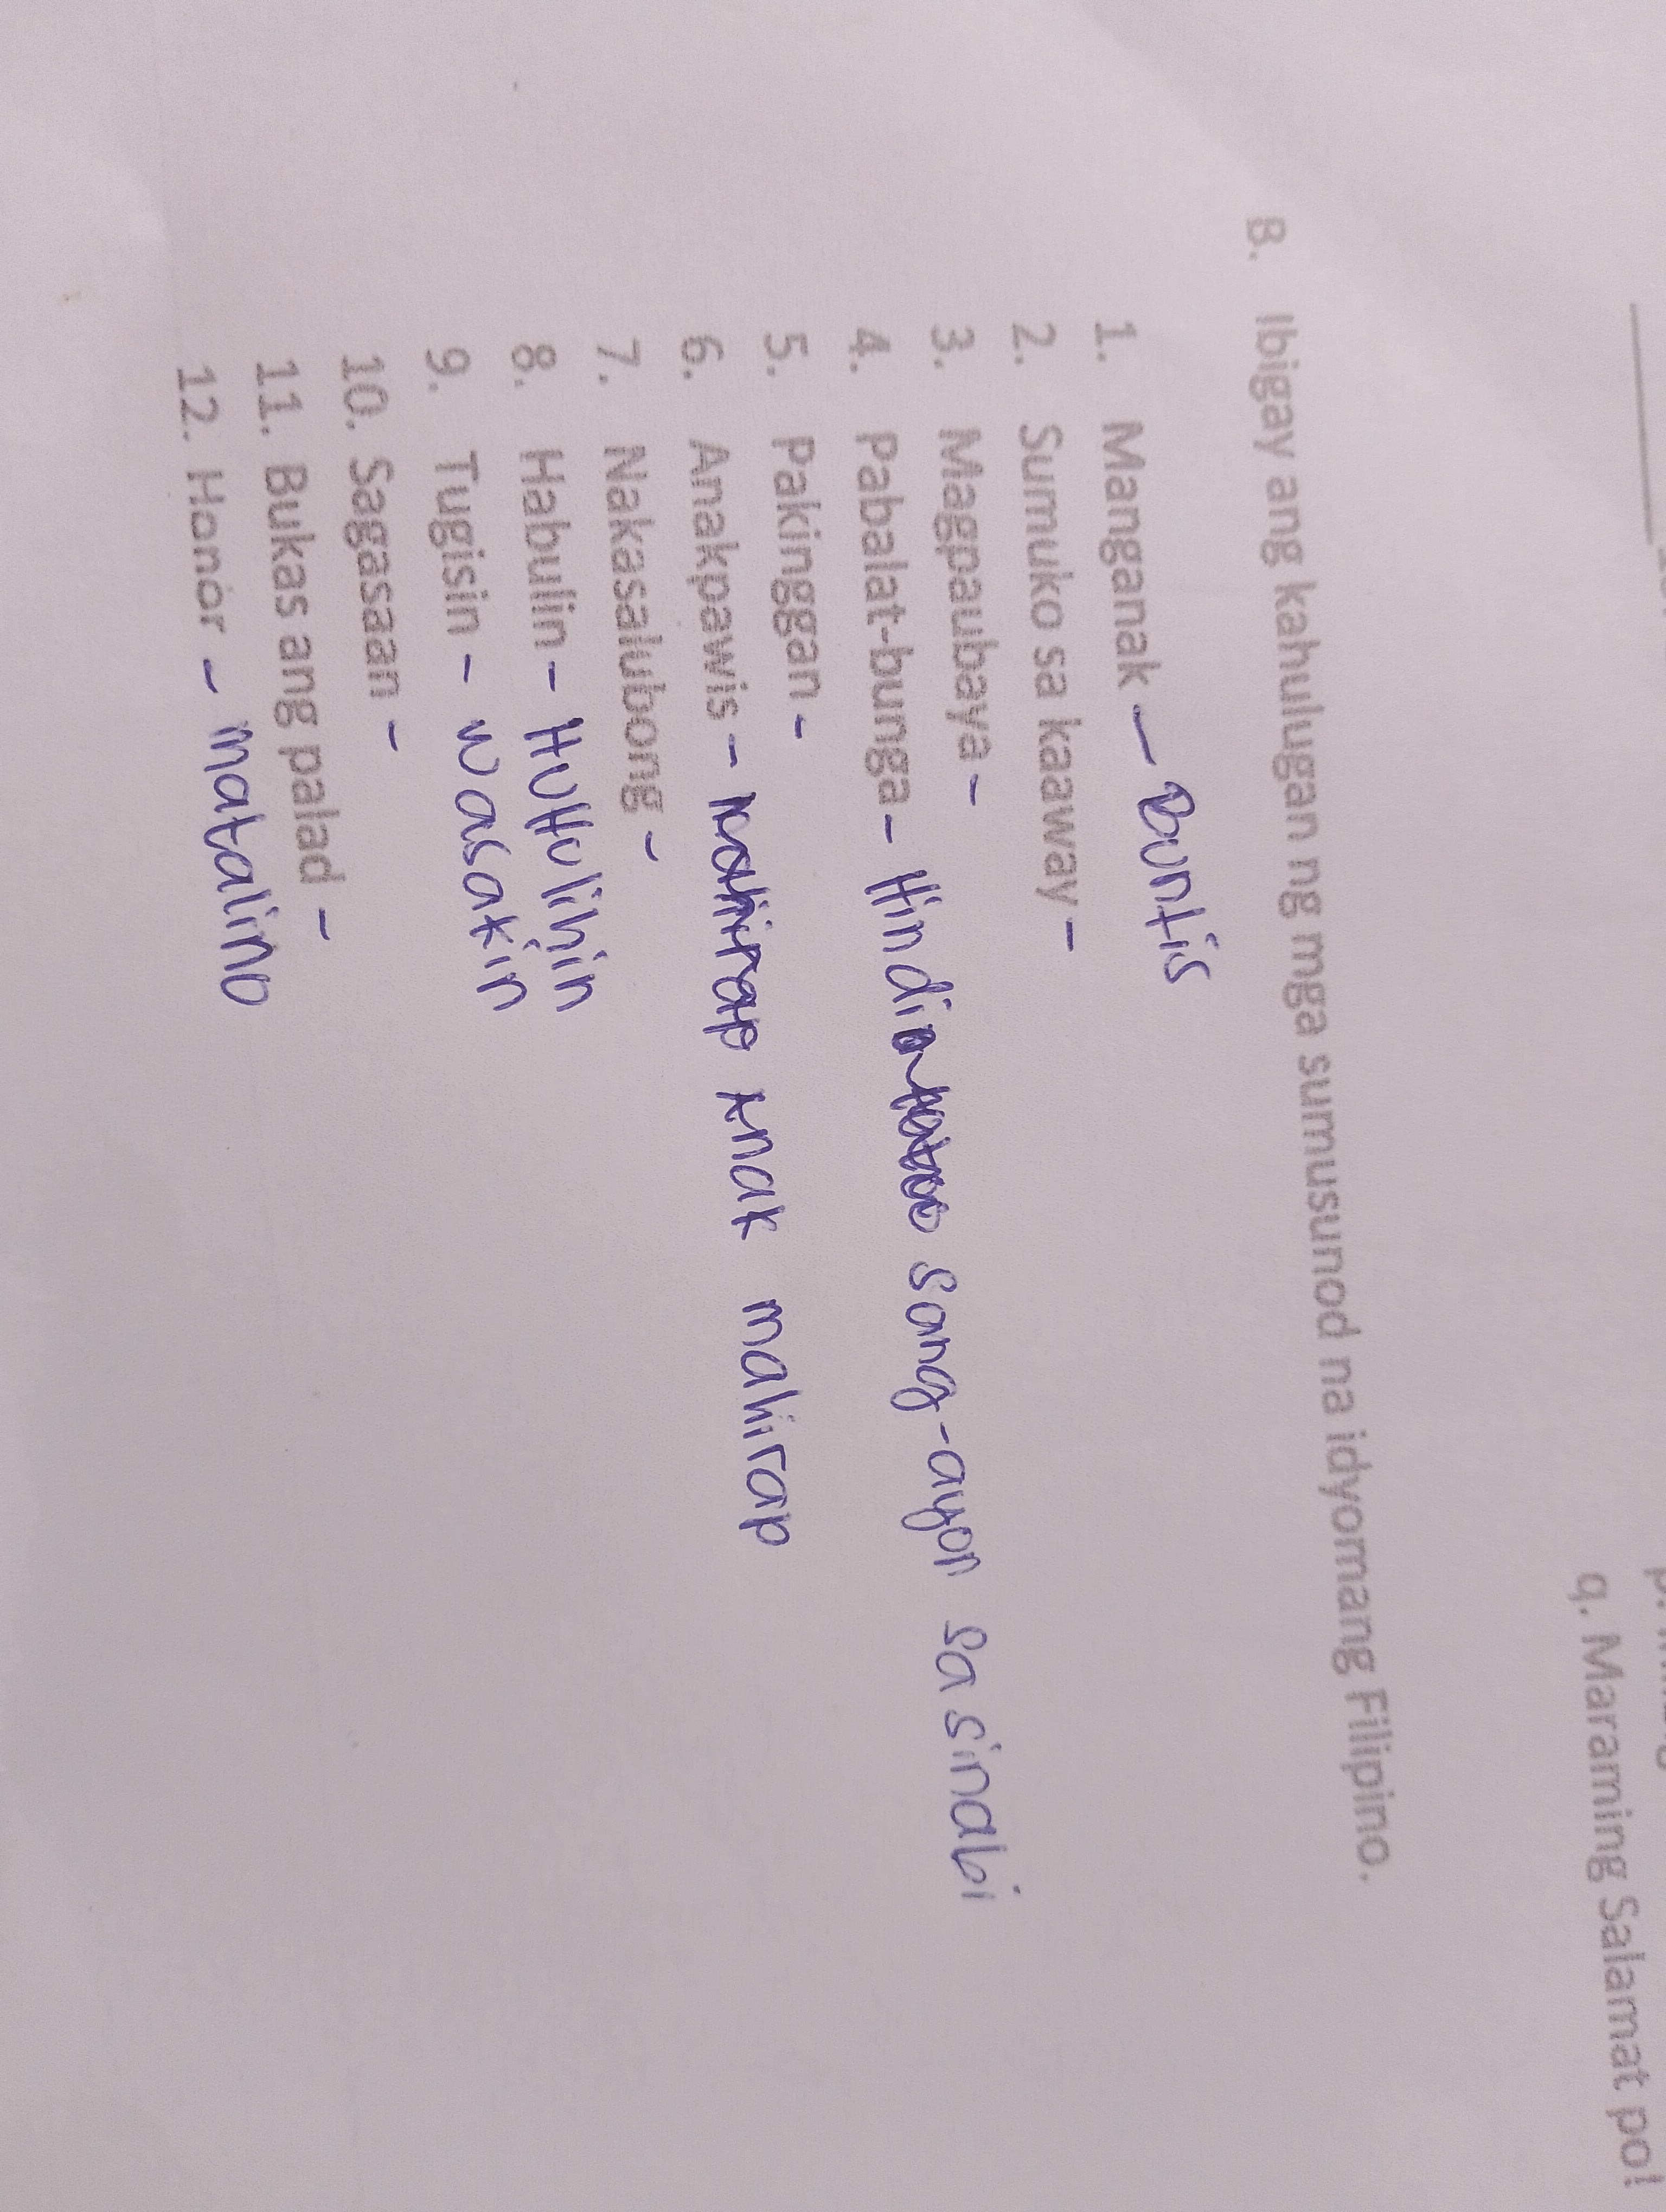 q. Maraming Salamat po!
B. Ibigay ang kahulugan ng mga sumusunod na idyomang Filipino.
1. Manganak - Buntis
2. Sumuko sa kaaway -
3. Magpaubaya -
4. Pabalat-bunga - Hindi sang-ayon sa sinabi
5. Pakinggan -
6. Anakpawis - Anak mahirap
7. Nakasalubong -
8. Habulin - HuHulihin
9. Tugisin - wasakin
10. Sagasaan -
11. Bukas ang palad -
12. Honor - matalino